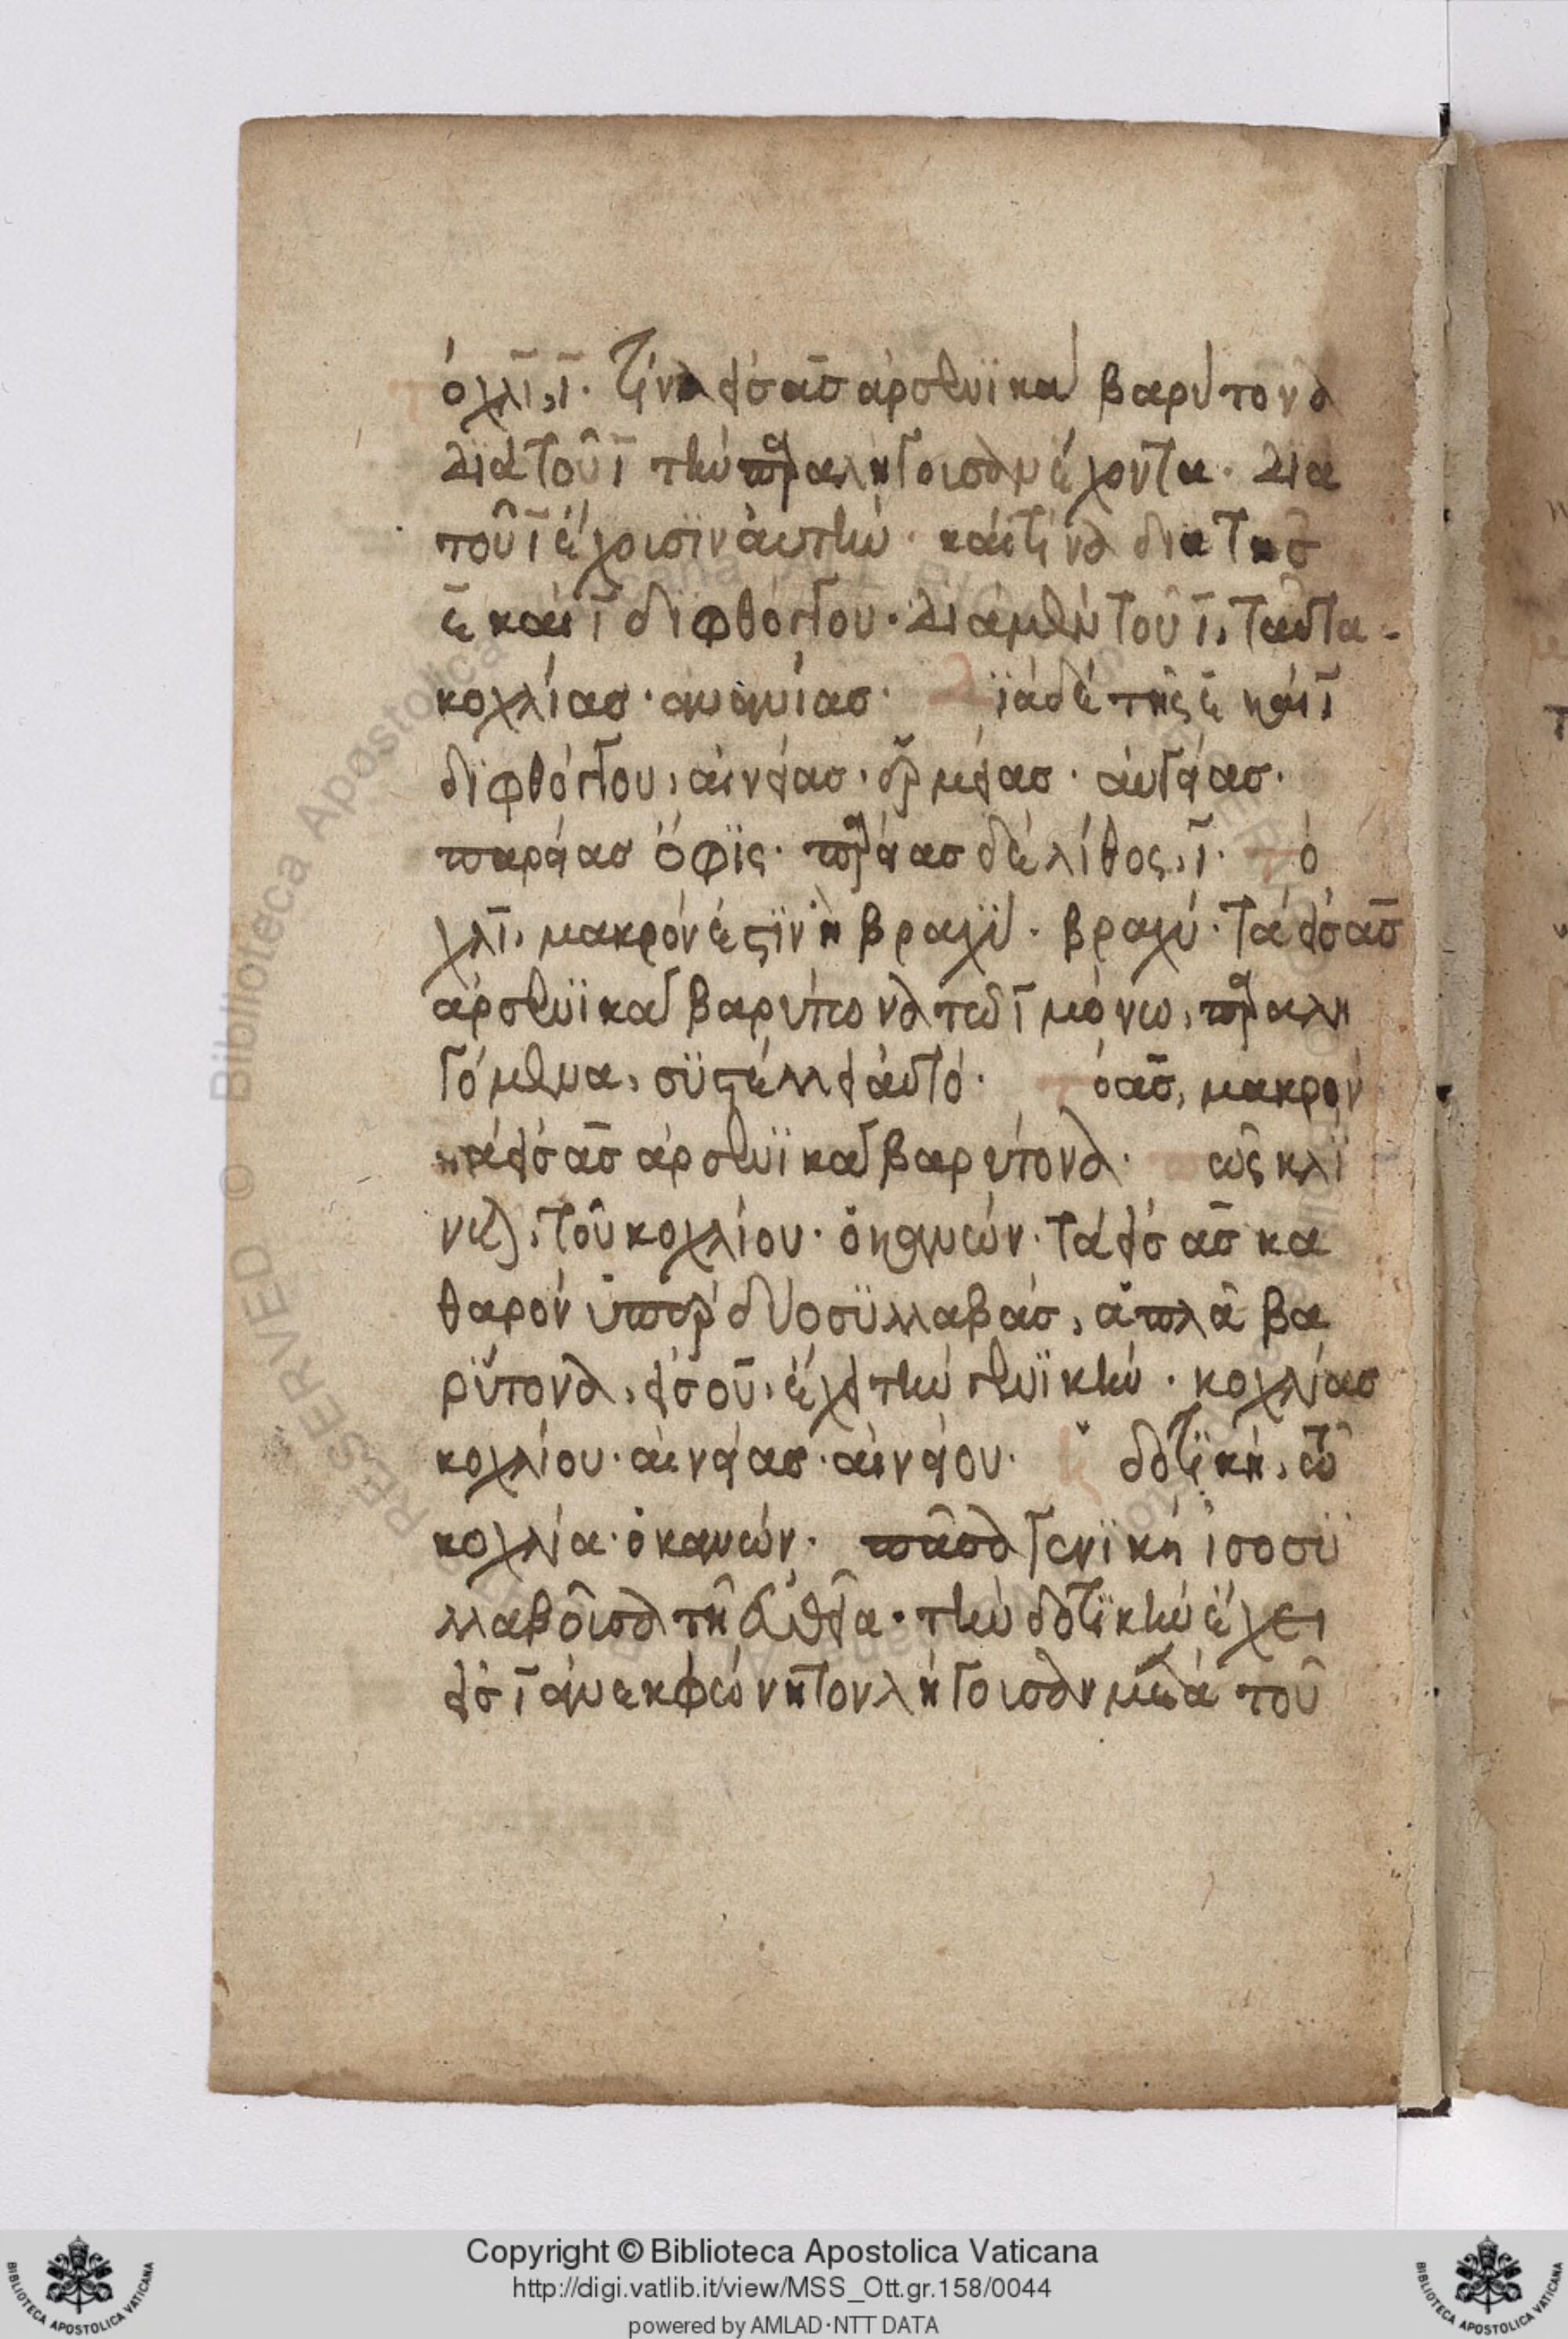 τὸ χλι, ι. τινὰ εἰς ας ἀρσενικὰ βαρύτονα
διὰ τοῦ ι τὴν παραλήγουσαν ἔχοντα. διὰ
τοῦ ι ἔχουσιν αὐτήν. καὶ τινὰ διὰ τῆς
ε καὶ ι διφθόγγου. διὰ μὲν τοῦ ι, ταῦτα
κοχλίας. ἀνανίας. διὰ δὲ τῆς ε καὶ ι
διφθόγγου, αἰνείας. ἑρμείας. αὐγείας.
παρείας ὄφις. δὲ λίθος, ι. τὸ
χλι, μακρόν ἐστιν ἢ βραχύ. βραχύ. τὰ εἰς ας
ἀρσενικὰ βαρύτονα τῶ ι μόνω, παραλη
γόμενα, συστέλλει αὐτό. τὸ ας, μακρόν
τὰ εἰς ας ἀρσενικὰ βαρύτονα. πῶς κλί
νεται, τοῦ κοχλίου. ὁ κανών. τὰ εἰς ας κα
θαρὸν ὑπὲρ δύο συλλαβάς, ἁπλᾶ βα
ρύτονα, εἰς ου, ἔχει τὴν γενικήν. κοχλίας
κοχλίου. αἰνείας. αἰνείου. ἡ δοτικὴ, τῶ
κοχλία. ὁ κανών. πᾶσα γενικὴ ἰσοσυ
λλαβοῦσα τῆ εὐθεία. τὴν δοτικὴν ἔχει
εἰς ι ἀνεκφώνητον λήγουσαν μετὰ τοῦ
Copyright © Biblioteca Apostolica Vaticana
http://digi.vatlib.it/view/MSS_Ott.gr.158/0044
powered by AMLAD·NTT DATA